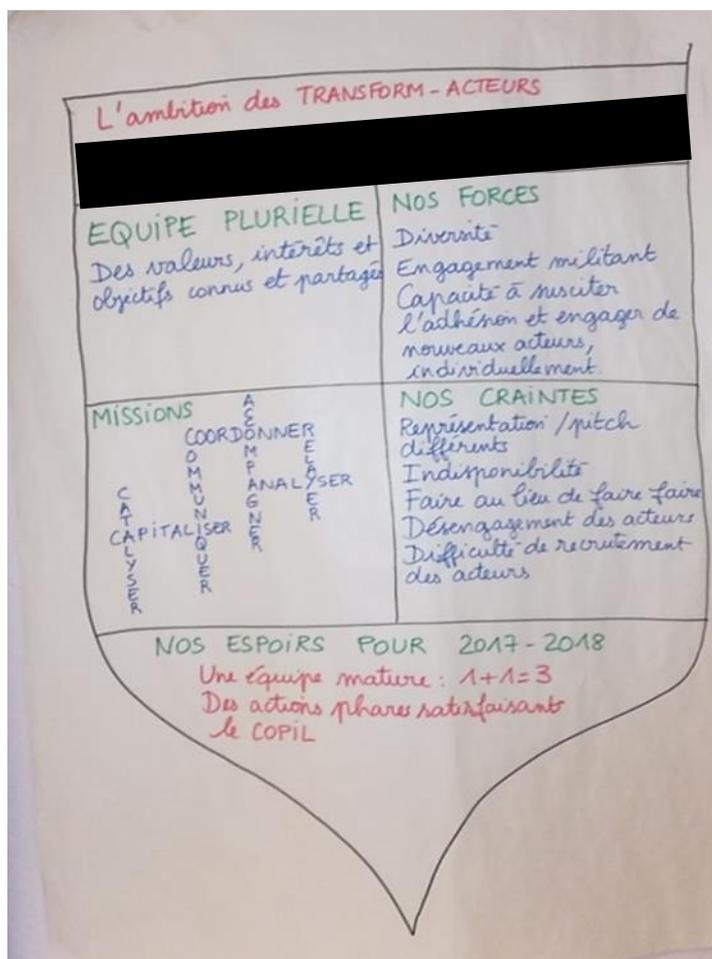 L'ambition des TRANSFORM-ACTEURS
EQUIPE PLURIELLE
Des valeurs, intérêts et
objectifs connus et partagés
NOS FORCES
Diversité
Engagement militant
Capacité à susciter
l'adhésion et engager de
nouveaux acteurs,
individuellement.
MISSIONS
ACCOMPAGNER
COORDONNER
COMMUNIQUER
RELAYER
ANALYSER
CATALYSER
CAPITALISER
NOS CRAINTES
Représentation / pitch
différents
Indisponibilité
Faire au lieu de faire faire
Désengagement des acteurs
Difficulté de recrutement
des acteurs
NOS ESPOIRS POUR 2017-2018
Une équipe mature : 1+1=3
Des actions phares satisfaisants
le COPIL